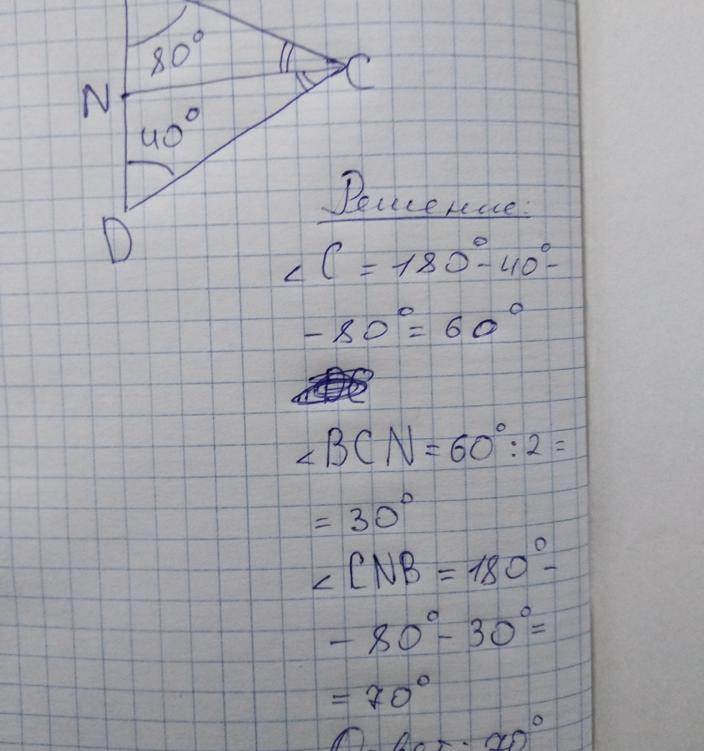 80°
N
C
40°
D
Решение:
∠C = 180° - 40° -
- 80° = 60°
∠BCN = 60° : 2 =
= 30°
∠CNB = 180° -
- 80° - 30° =
= 70°
Ответ: 70°